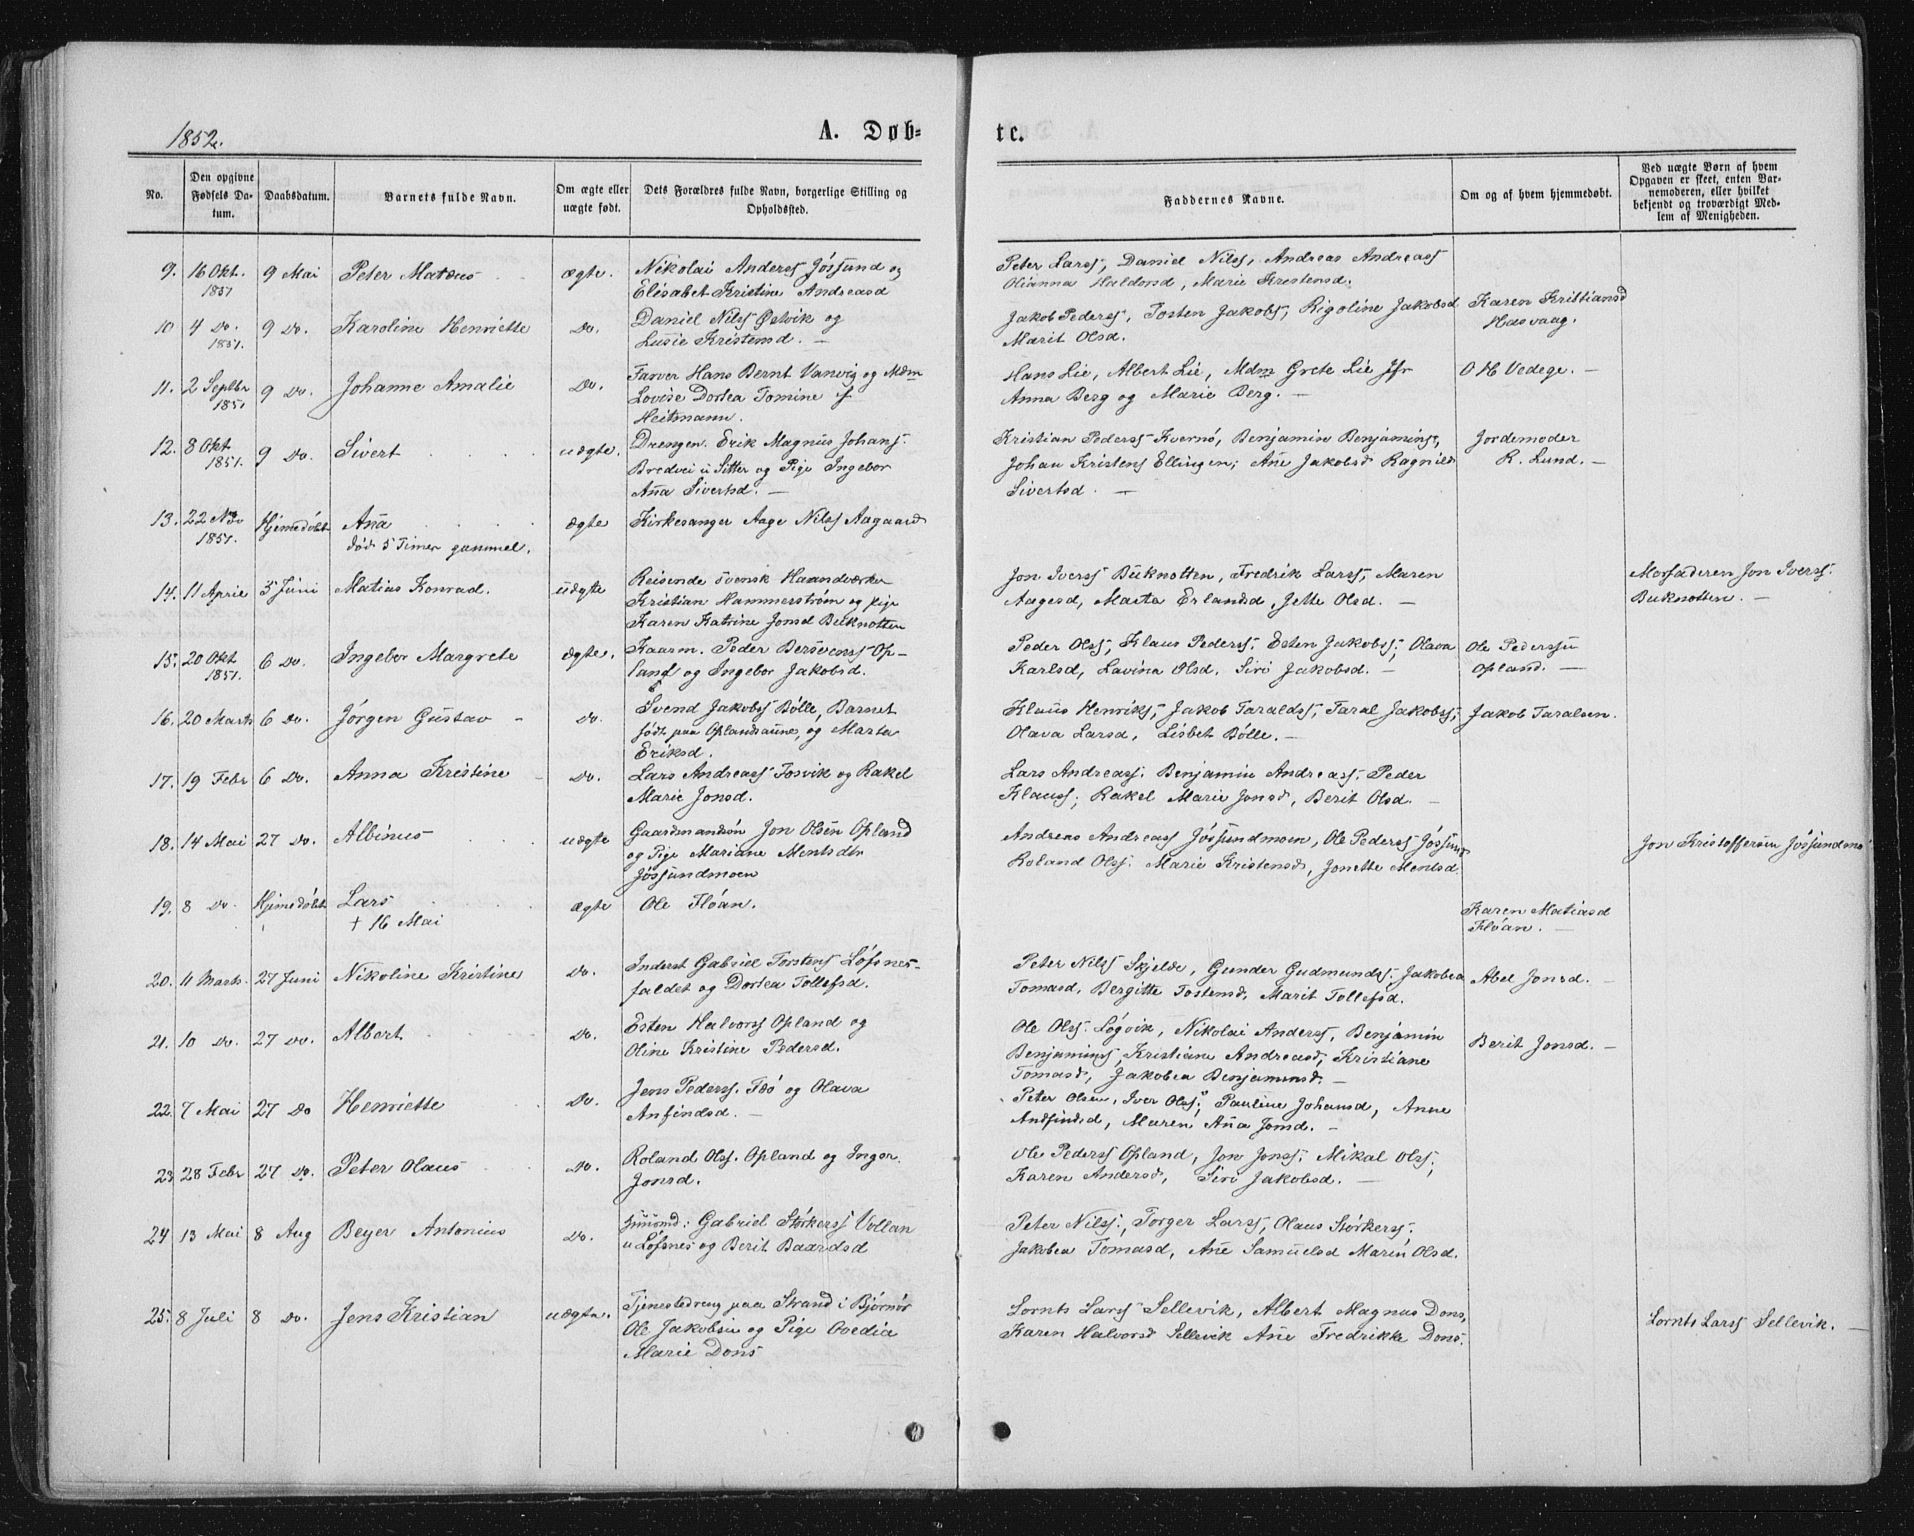 1852.
A. Døb-
te.
No.
Den opgivne Fødsels Da-tum.
Daabsdatum.
Barnets fulde Navn.
Om ægte eller uægte født.
Dets Forældres fulde Navn, borgerlige Stilling og Opholdssted.
Faddernes Navne.
Om og af hvem hjemmedøbt.
Ved uægte Børn af hvem Opgaven er skeet, enten Bar-nemoderen, eller hvilket bekjendt og troværdigt Med-lem af Menigheden.
9. 16 Okt. 1851 9 Mai Peter Matæus ægte.
Nikolai Anderss Jøssund og
Elisabet Kristine Andreasd
Peter Larss, Daniel Nilss, Andreas Andreass
Olianna Haldorsd, Marie Kristensd.
10 4 Do. 1851. 9 Do. Karoline Henriette Do.
Daniel Nilss Østvik og
Lusie Kristensd. —
Jakob Pederss, Tosten Jakobs, Rigoline Jakobsd
Marit Olsd.
Karen Kristiansd
Hasvaag.
11. 2 Septbr 1851 9 Do. Johanne Amalie Do.
Farver Hans Bernt Vanvig og Mdm
Lovise Dortea Tomine f.
Heitmann.
Hans Lie, Albert Lie, Mdm Grete Lie Jfr
Anna Berg og Marie Berg. —
O H Vedege. —
12. 8 Okt. 1851. 9 Do. Sivert uægte.
Drengen Erik Magnus Johans.
Bredvei u Sitter og Pige Ingebor
Aña Sivertsd. —
Kristian Pederss Kvernø, Benjamin Benjamins,
Johan Kristens Ellingen; Añe Jakobsd Ragnild
Sivertsd. —
Jordemoder
R. Lund. —
13. 22 Nov 1851. Hjemedøbt Aña ægte
død 5 Timer gammel.
Kirkesanger Aage Nilss Aagaard
14. 11 April 5 Juni Matias Konrad. uægte
Reisende svensk Haandværker
Kristian Hammerstrøm og pige
Karen Katrine Jonsd Buknotten
Jon Iverss Buknotten, Fredrik Larss, Maren
Aagesd, Marta Erlandsd, Jette Olsd. —
Morfaderen Jon Iverss.
Buknotten. —
15. 20 Okt 1851. 6 Do. Ingebor Margrete ægte.
Kaarm. Peder Bersvenss Op-
land og Ingebor Jakobsd.
Peder Olss, Klaus Pederss, Esten Jakobss; Olava
Karlsd, Lavina Olsd, Siri Jakobsd. —
Ole Pederssen
Opland. —
16. 20 Marts 6 Do. Jørgen Gustav — Do.
Svend Jakobss Bølle, Barnet
født paa Oplandsaune, og Marta
Eriksd.
Klaus Henriks, Jakob Taralds, Taral Jakobss;
Olava Larsd, Lisbet Bølle. —
Jakob Taralsen.
17. 19 Febr 6 Do. Anna Kristine — Do.
Lars Andreass Tosvik og Rakel
Marie Jonsd.
Lars Andreass. Benjamin Andreass, Peder
Klauss; Rakel Marie Jonsd, Berit Olsd. —
18. 14 Mai 27 Do. Albinus uægte
Gaardmandsøn Jon Olsen Opland
og Pige Mariane Mentsdtr
Jøssundmoen
Andreas Andreass Jøssundmoen, Ole Pederss Jøssund
Roland Olss. Marie Kristensd, Jonette Mentsd.
Jon Kristoffersen Jøssundmo
19. 8 Do. Hjemedøbt Lars ægte
† 16 Mai
Ole Fløan.
Karen Matiasd
Fløan. —
20. 11 Marts. 27 Juni Nikoline Kristine Do.
Inderst Gabriel Torstens Løfsnes-
faldet og Dortea Tollefsd.
Peter Nilss Skjelde, Gunder Gudmunds. Jakobea
Tomasd, Bergitte Tostensd, Marit Tollefsd.
Abel Jonsd. —
21. 10 Do. 27 Do. Albert Do.
Esten Halvorss Opland og
Oline Kristine Pedersd.
Ole Olss. Løgvik, Nikolai Anderss, Benjamin
Benjamins, Kristiane Andreasd, Kristiane
Tomasd, Jakobea Benjaminsd. —
Berit Jonsd. —
22. 7 Mai 27 Do Henriette Do.
Jens Pederss. Fæø og Olava
Anfindsd. —
Peter Olsen, Iver Olss; Pauline Johansd, Anne
Andfindsd, Maren Aña Jonsd. —
23 28 Febr 27 Do. Peter Olaus Do.
Roland Olss. Opland og Inger
Jonsd.
Ole Pederss Opland, Jon Jonss. Mikal Olss;
Karen Andersd, Siri Jakobsd. —
24 13 Mai 8 Aug Beyer Antonius Do.
Gabriel Størkerss Vollan
u Løfsnes og Berit Baardsd
Peter Nilss., Torger Larss, Olaus Størkerss,
Jakobea Tomasd, Añe Samuelsd Maren Olsd.
25. 8 Juli 8 Do. Jens Kristian uægte.
Tjenestedreng paa Strand i Bjørnør
Ole Jakobsen og Pige Ovedia
Marie Dons
Lornts Larss Sellevik, Albert Magnus Dons,
Karen Halvorsd Sellevik Añe Fredrikke Dons.
Lornts Larss Sellevik. —